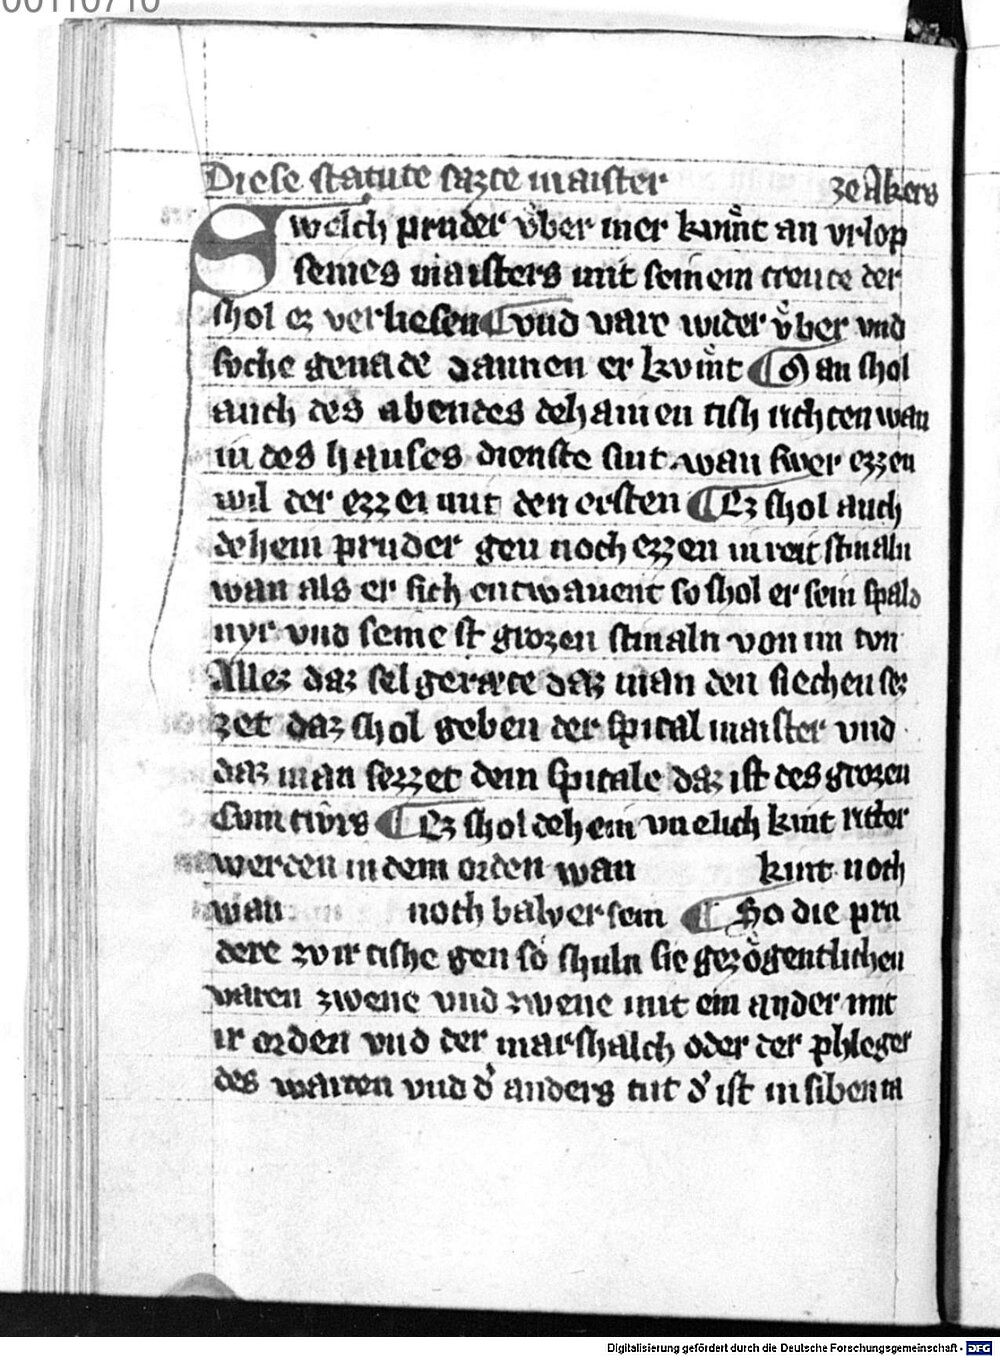 Diese statute sazte maister ze Akers
Swelch pruder vͦber mer kumͦt an vrlop
seines maisters mit seinem creuce der
shol ez verliesen ¶ vnd vare wider vͦber vnd
svche genade dannen er kvmͦt ¶ Man shol
auch des abendes dehainen tish richten wan
in des hauses dienste sint wan swer ezzen
wil der ezze mit den ersten ¶ Ez shol auch
dehein pruder gen noch ezzen in reit stinaln
wan als er sich entwauent so shol er sein spald
nyr vnd seine st grozen stinaln von im tvn
Allez daz selgeræte daz man den siechen sez
zet daz shol geben der spital maister vnd
daz man sezzet dem spitale daz ist des grozen
¶ Ez shol dehein vnelich kint ritter
werden in dem orden wan kint noch
wan noch balver sein ¶ So die pru
dere zvir tishe gen so shuln sie gezogentlichen
varen zwene vnd zwene mit ein ander mit
ir orden vnd der marshalch oder der phleger
des warten vnd d' anders tut d' ist in siben ta
Digitalisierung gefördert durch die Deutsche Forschungsgemeinschaft - DFG